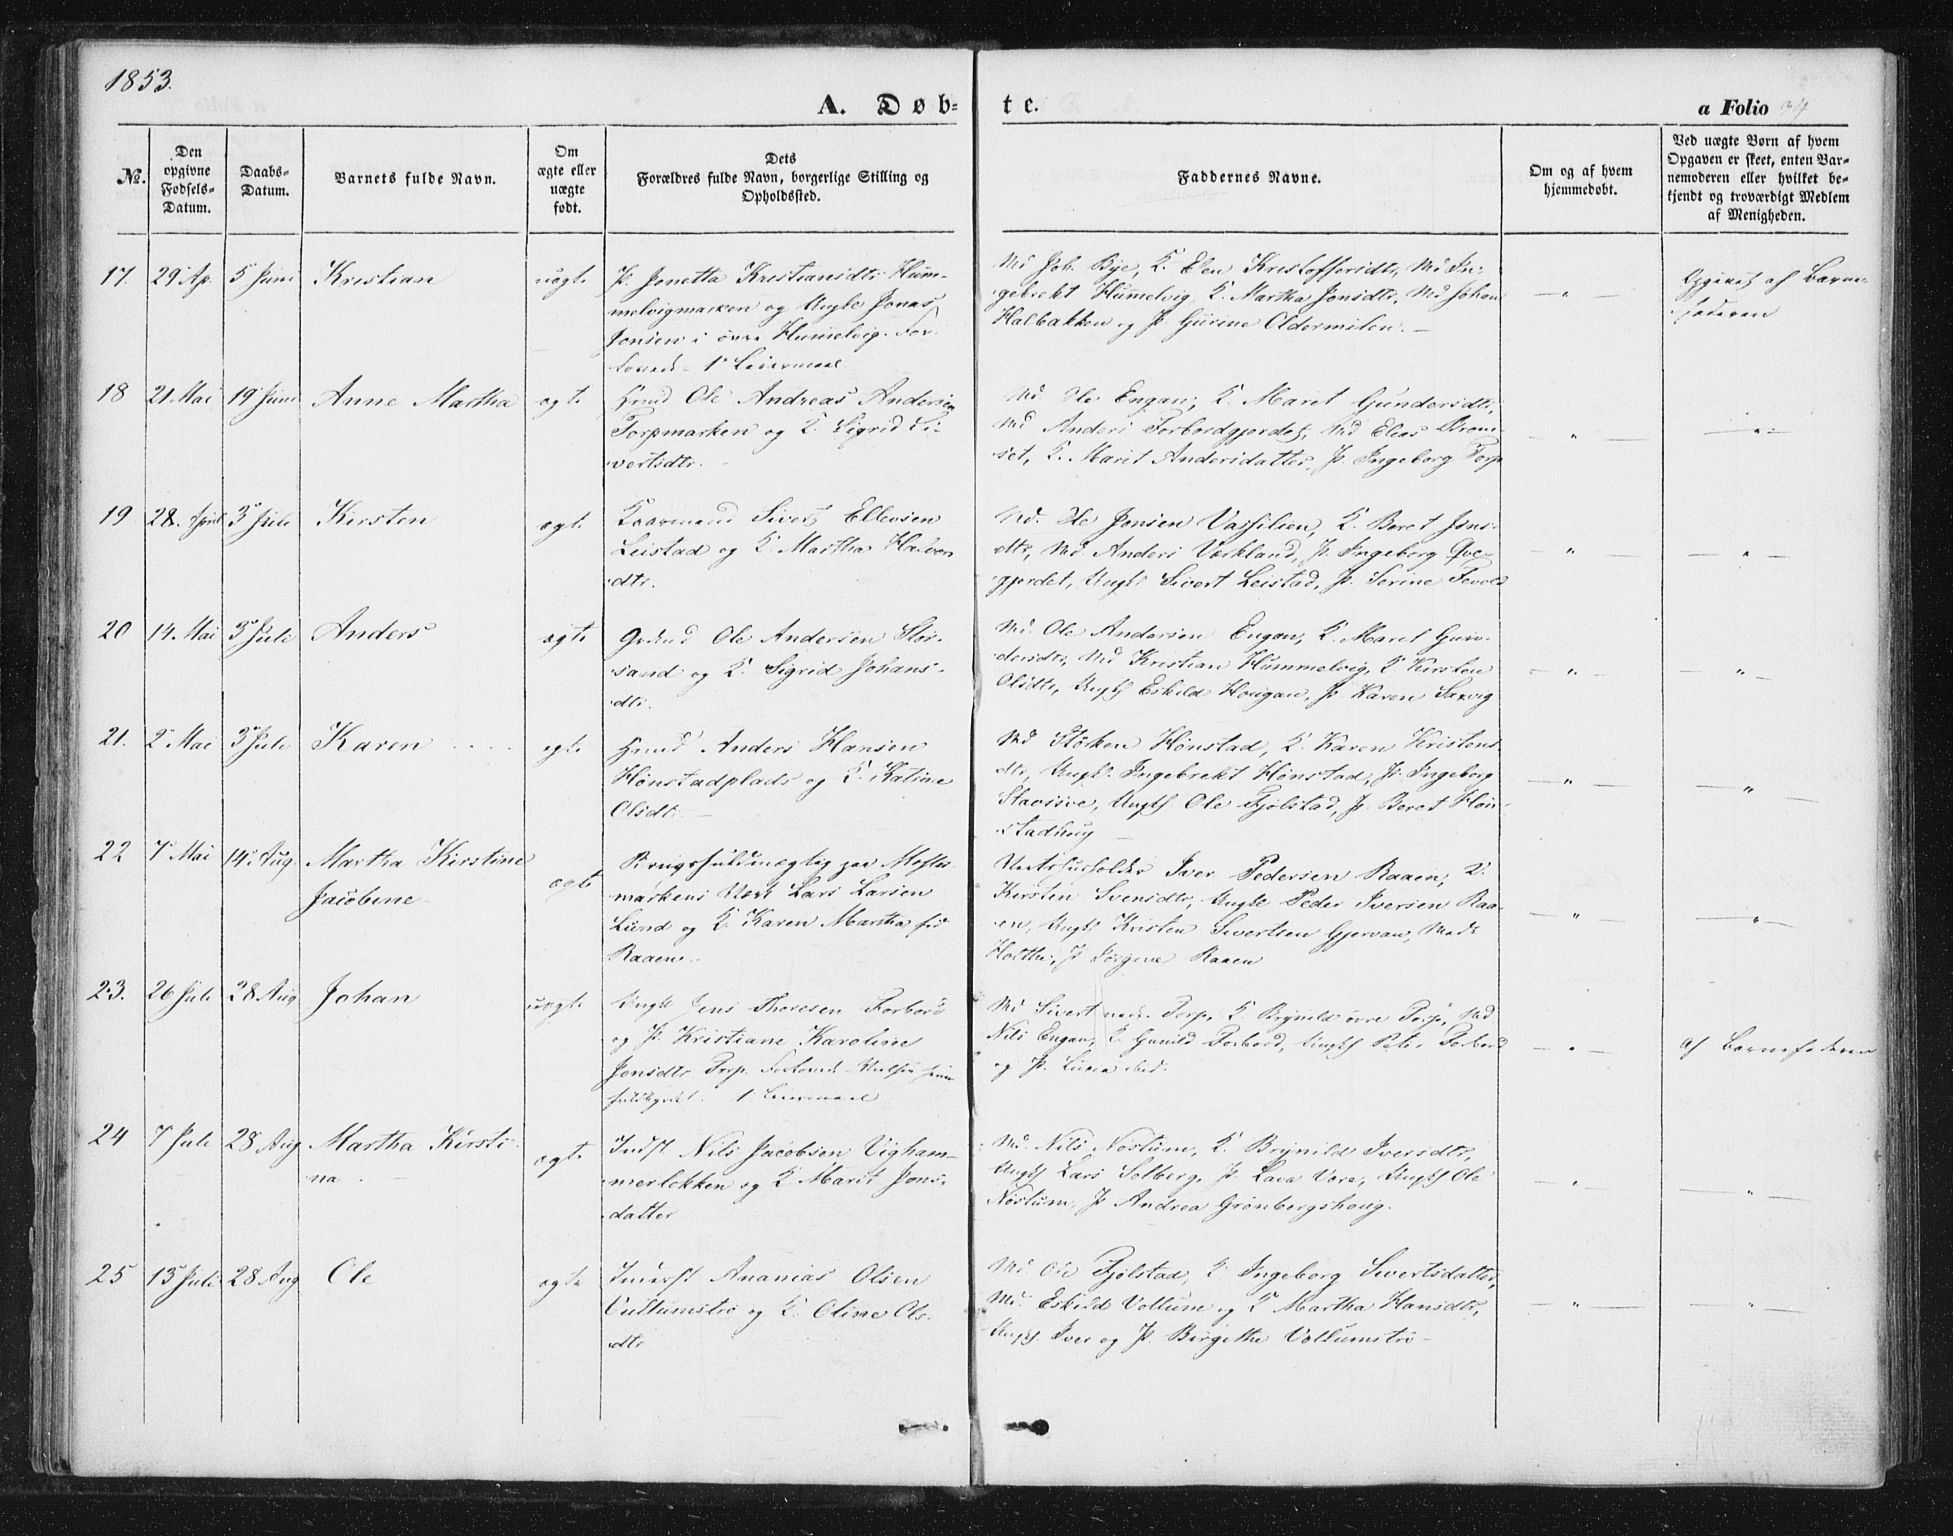 1853.
A. Døb-
te.
a Folio 34
No.
Den opgivne Fødsels-Datum.
Daabs-Datum.
Barnets fulde Navn.
Om ægte eller uægte født.
Dets Forældres fulde Navn, borgerlige Stilling og Opholdssted.
Faddernes Navne.
Om og af hvem hjemmedøbt.
Ved uægte Børn af hvem Opgaven er skeet, enten Barnemoderen eller hvilket bekjendt og troværdigt Medlem af Menigheden.
17. 29 Ap. 5 Juni Kristian uægte
P. Jonetta Kristiansdtr Hum-
melvigmarken og Ungk Jonas
Jonsen i övre Hummelvig. For-
lovede - 1 Leiermaal
Md Joh. Bye, K. Elen Kristoffersdtr, Md In-
gebrekt Hummelvig, K. Martha Jonsdtr, Md Johan
Halbakken og P. Gurine Oldermelen. —
— " —
Opgivet af Barne-
faderen
18 21 Mai 19 Juni Anne Martha ægte
Hmd Ole Andreas Andersen
Torpmarken og K. Sigrid Si-
vertsdtr.
Md. Ole Engan, K. Maret Gundersdtr,
Md Anders Forbordgjordet, Md Elias
set, K. Marit Andersdatter, P. Ingeborg Torp
— " —
— " —
19 28. April 3 Juli Kirsten ægte
Sivert Ellevsen
Leistad og K. Martha Halvor
dtr.
Md. Ole Jonsen Vasslien, K. Beret Jons-
dtr, Md. Anders Værkland, P. Ingeborg Qve-
gjerdet, Ungk Sivert Leistad, P. Serine
— " —
— " —
20 14 Mai 3 Juli Anders ægte
Grdmd Ole Andersen Stor-
sand og K. Sigrid Johans-
dtr.
Md. Ole Andersen Engan, K. Maret Gun-
dersdtr, Md Kristian Hummelvig, K Kirsten
Olsdtr, Ungk Eskild Hougan, P. Karen Saxvig
— " —
— " —
21. 2 Mai 3 Juli Karen ægte
Hmd Anders Hansen
Hönstadplads og K. Katrine
Olsdtr. —
Md Störken Hönstad, K. Karen Kristens
dtr, Ungk. Ingebrekt Hönstad, P. Ingeborg
Ungk Ole Fjölstad, P. Beret Hön-
stadhaug —
— " —
— " —
22 7 Mai 14 Aug. Martha Kirstine
Jacobine ægte
Brugsfuldmægtig paa Mostad-
markens Værk Lars Larsen
Lund og K. Karen Martha fød
Raaen.
Værtshusholder Iver Pedersen Raaen, K.
Kirsten Svensdtr, Ungk Peder Iversen Raa-
en, Ungk Kristen Sivertsen Gjervan, Mad.
Holthe, P Jörgine Raaen
— " —
— " —
23. 26 Juli 28 Aug Johan uægte
Ungk Jens Thoresen Forbord
og P. Kristiane Karoline
Jonsdtr Torp. Forlovede
1 Leiermaal
Md Sivert nedre Torp, K. Brynild övre Torp, Md
Nils Engan, K. Gunild Forbord, Ungk Peter Forbord
og P. Lucia ibid.
— " —
af Barnefaderen
24 7 Juli 28 Aug Martha Kirsti-
na ægte
Indst Nils Jacobsen Vigham-
merlökken og K Marit Jons-
datter
Md. Nils Nöstum, K. Brynild Iversdtr,
Ungk Lars Solberg, P. Lava Vore, Ungk Ole
Nöstum, P Andrea Grönbergshoug.
— " —
— " —
25 13 Juli 28 Aug Ole ægte
Inderst Ananias Olsen
Vullumströ og K. Oline Ols-
dtr
Md Ole Fjölstad, K Ingeborg Sivertsdatter,
Md. Eskild Vollum og K Martha Hansdtr,
Ungk Iver og P. Birgithe Vollumströ —
— " —
— " —